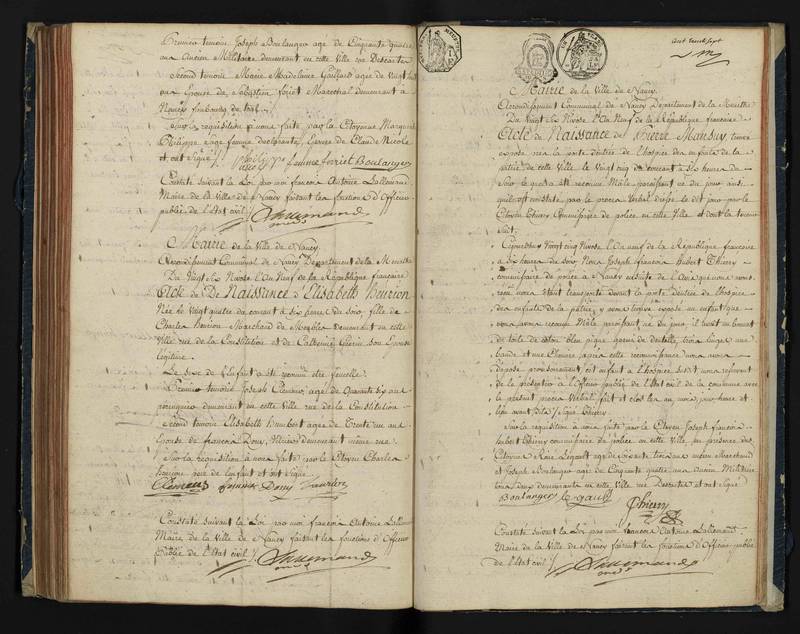 Premier temoin Joseph Boulanger agé de Cinquante quatre
ans Ancien Militaire demeurant en cette Ville rue Descartes
Second temoin Marie Madelaine Gaillard agée de Vingt huit
ans Epouse de Sebastien foriet Marechal demeurant a
Nancy faubourg de
Sur la requisition a nous faite par la Citoyenne Margueritte
Philippe sage femme declarante, Epouse de Claude Nicole
et ont signé
femme forriet Boulanger
Constaté suivant la Loi par moi françois Antoine Lallemand
Maire de la Ville de Nancy faisant les fonctions d'Officier
public de l'Etat civil
Lallemand
Mairie de la Ville de Nancy
Arrondissement Communal de Nancy Departement de la Meurthe
Du Vingt Six Nivose l'An Neuf de la République française
Acte de Naissance d'Elisabeth Henrion
Née le Vingt quatre du courant à six heures du soir, fille de
Charles Henrion Marchand de Meubles demeurant en cette
Ville rue de la Constitution et de Catherine Guerin son Epouse
légitime.
Le sexe de l'Enfant a été reconnu être femelle.
Premier temoin Joseph Clement agé de Quarante six ans
perruquier demeurant en cette Ville rue de la Constitution
Second temoin Elisabeth Humbert agée de Trente un ans
Epouse de francois demeurant même rue.
Sur la requisition à nous faite par le Citoyen Charles
henrion pere de l'enfant et ont signé
Clement femme henrion
Constaté suivant la Loi par moi françois Antoine Lallemand
Maire de la Ville de Nancy faisant les fonctions d'Officier
Public de l'Etat civil
Lallemand
Cent trente sept
Mairie de la Ville de Nancy.
Arrondissement Communal de Nancy Departement de la Meurthe
Du Vingt Six Nivose l'An Neuf de la République française
Acte de Naissance de Pierre Mansuy, trouvé
exposé à la porte d'entrée de l'hospice des enfants de la
patrie de cette Ville le Vingt cinq du courant à six heures du
Soir, lequel a été reconnu Mâle paroissant né du jour ainsi
qu'il est constaté par le procès Verbal dressé le dit jour par le
Citoyen Thiery Commissaire de police en cette Ville et dont la teneur
suit;
Cejourd'huy Vingt cinq Nivose l'An neuf de la République française
à six heures du soir Nous Joseph françois hubert Thiery
commissaire de police à Nancy ensuite de l'Avis que nous avons
reçu nous étant transporté devant la porte d'entrée de l'hospice
des enfants de la patrie, y avons trouvé exposé un enfant que
nous avons reconnu Mâle paroissant né du jour, il avoit un bonnet
de toile de coton bleu piqué garni de dentelle, trois langes une
bande et une Chemise, après cette reconnoissance nous avons
déposé provisoirement cet enfant à l'hospice sauf à nous referant
de le présenter à l'Officier public de l'Etat civil de la commune avec
le present procès Verbal, fait et clos les an mois, jour heure et
lieu avant dits / Signé Thiery.
Sur la requisition à nous faite par le Citoyen Joseph françois
hubert Thiery commissaire de police en cette Ville, en presence des
Citoyens René Legault agé de Soixante trois ans ancien Marchand
et Joseph Boulanger agé de Cinquante quatre ans Ancien Militaire
tous deux demeurants en cette Ville rue Descartes et ont signé
Boulanger le gault
Thiery
Constaté suivant la Loi par moi françois Antoine Lallemand
Maire de la Ville de Nancy faisant les fonctions d'Officier public
de l'Etat civil
Lallemand